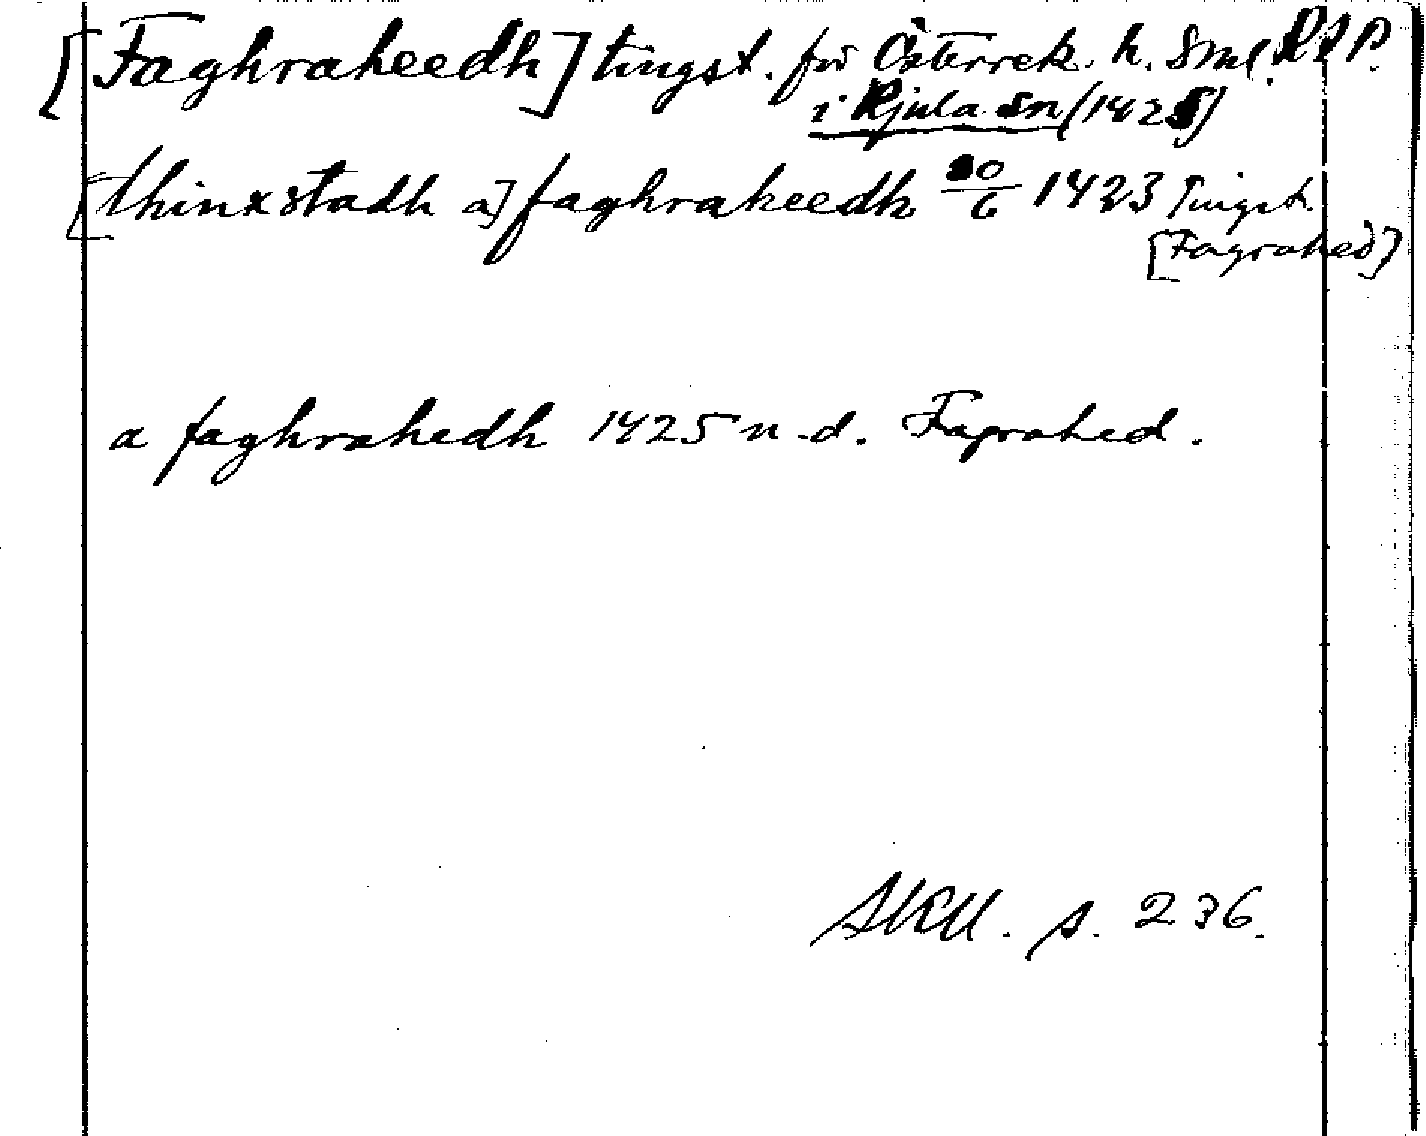 [Faghraheedh] tingst. för Österrek. h. Sml. RAP.
i Kjula sn (1425)
[thinxstadh a] faghraheedh 20/6 1423 Tingst.
[Fagrahed]
a faghrahedh 1425 n.d. Fagrahed.
SRU. s. 236.